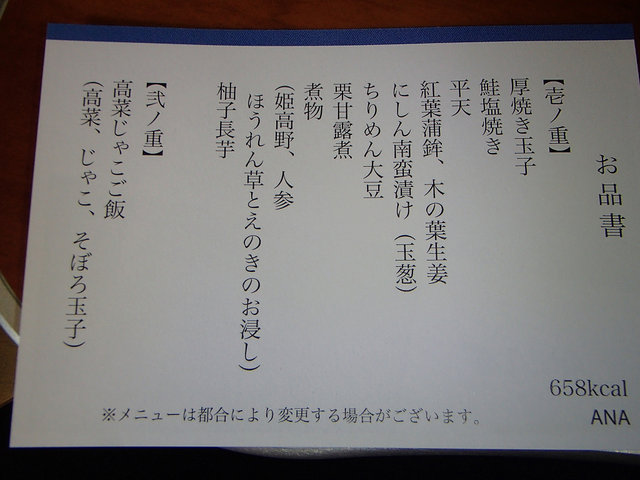 お品書
【壱ノ重】
厚焼き玉子
鮭塩焼き
平天
紅葉蒲鉾、木の葉生姜
にしん南蛮漬け（玉葱）
ちりめん大豆
栗甘露煮
煮物
（姫高野、人参
ほうれん草とえのきのお浸し）
柚子長芋
【弐ノ重】
高菜じゃこご飯
（高菜、じゃこ、そぼろ玉子）
658kcal
※メニューは都合により変更する場合がございます。
ANA